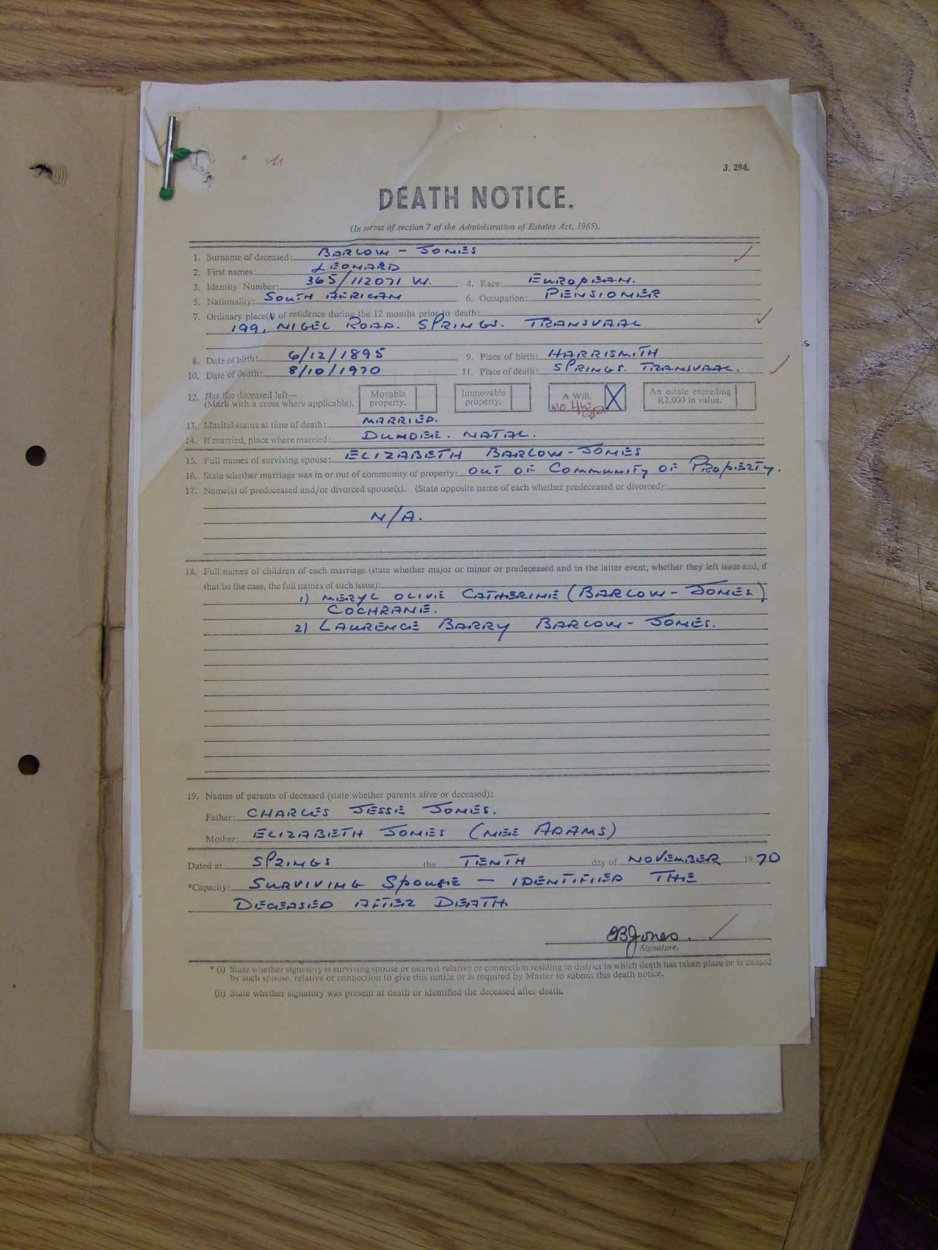 J. 294.
DEATH NOTICE.
(In terms of section 7 of the Administration of Estates Act, 1965).
1. Surname of deceased: BARLOW - JONES
2. First names: LEONARD
3. Identity Number: 365/112071 W. 4. Race: EUROPEAN.
5. Nationality: SOUTH AFRICAN 6. Occupation: PENSIONER
7. Ordinary place(s) of residence during the 12 months prior to death:
199, NIGEL ROAD. SPRINGS. TRANSVAAL
8. Date of birth: 6/12/1895 9. Place of birth: HARRISMITH
10. Date of death: 8/10/1970 11. Place of death: SPRINGS. TRANSVAAL.
12. Has the deceased left— Movable Immovable A Will. X An estate exceeding
(Mark with a cross where applicable). property. property. R2,000 in value.
13. Marital status at time of death: MARRIED.
14. If married, place where married: DUNDEE. NATAL.
15. Full names of surviving spouse: ELIZABETH BARLOW-JONES
16. State whether marriage was in or out of community of property: OUT OF COMMUNITY OF PROPERTY.
17. Name(s) of predeceased and/or divorced spouse(s). (State opposite name of each whether predeceased or divorced):
N/A.
18. Full names of children of each marriage (state whether major or minor or predeceased and in the latter event, whether they left issue and, if
that be the case, the full names of such issue):
1) MERYL OLIVE CATHERINE (BARLOW-JONES)
COCHRANE.
2) LAURENCE BARRY BARLOW-JONES.
19. Names of parents of deceased (state whether parents alive or deceased):
Father: CHARLES JESSE JONES.
Mother: ELIZABETH JONES (NEE ADAMS)
Dated at SPRINGS the TENTH day of NOVEMBER 1970
*Capacity: SURVIVING SPOUSE — IDENTIFIED THE
DECEASED AFTER DEATH
EBJones.
Signature.
* (i) State whether signatory is surviving spouse or nearest relative or connection residing in district in which death has taken place or is caused
by such spouse, relative or connection to give this notice or is required by Master to submit this death notice.
(ii) State whether signatory was present at death or identified the deceased after death.